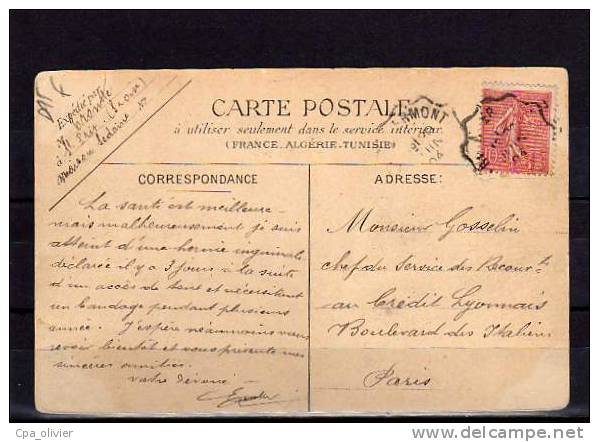 Expédié par
CARTE POSTALE
à utiliser seulement dans le service intérieur
(FRANCE_ALGÉRIE_TUNISIE)
RMONT
CORRESPONDANCE
ADRESSE:
La santé est meilleure
mais malheureusement je suis
atteint d'une hernie inguinale
déclarée il y a 3 jours à la suite
d'un accès de toux et nécessitant
un bandage pendant plusieurs
années. J'espère néanmoins vous
revoir bientôt et vous présente mes
sincères amitiés
votre dévoué
Monsieur Gosselin
chef du Service des Recouv.ts
au Crédit Lyonnais
Boulevard des Italiens
Paris
Cpa_olivier
delcampe.net